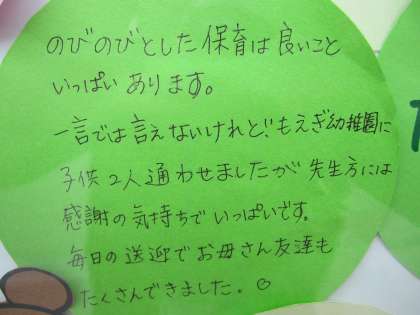 のびのびとした保育は良いこと
いっぱいあります。
一言では言えないけれど、もえぎ幼稚園に
子供2人通わせましたが先生方には
感謝の気持ちでいっぱいです。
毎日の送迎でお母さん友達も
たくさんできました。